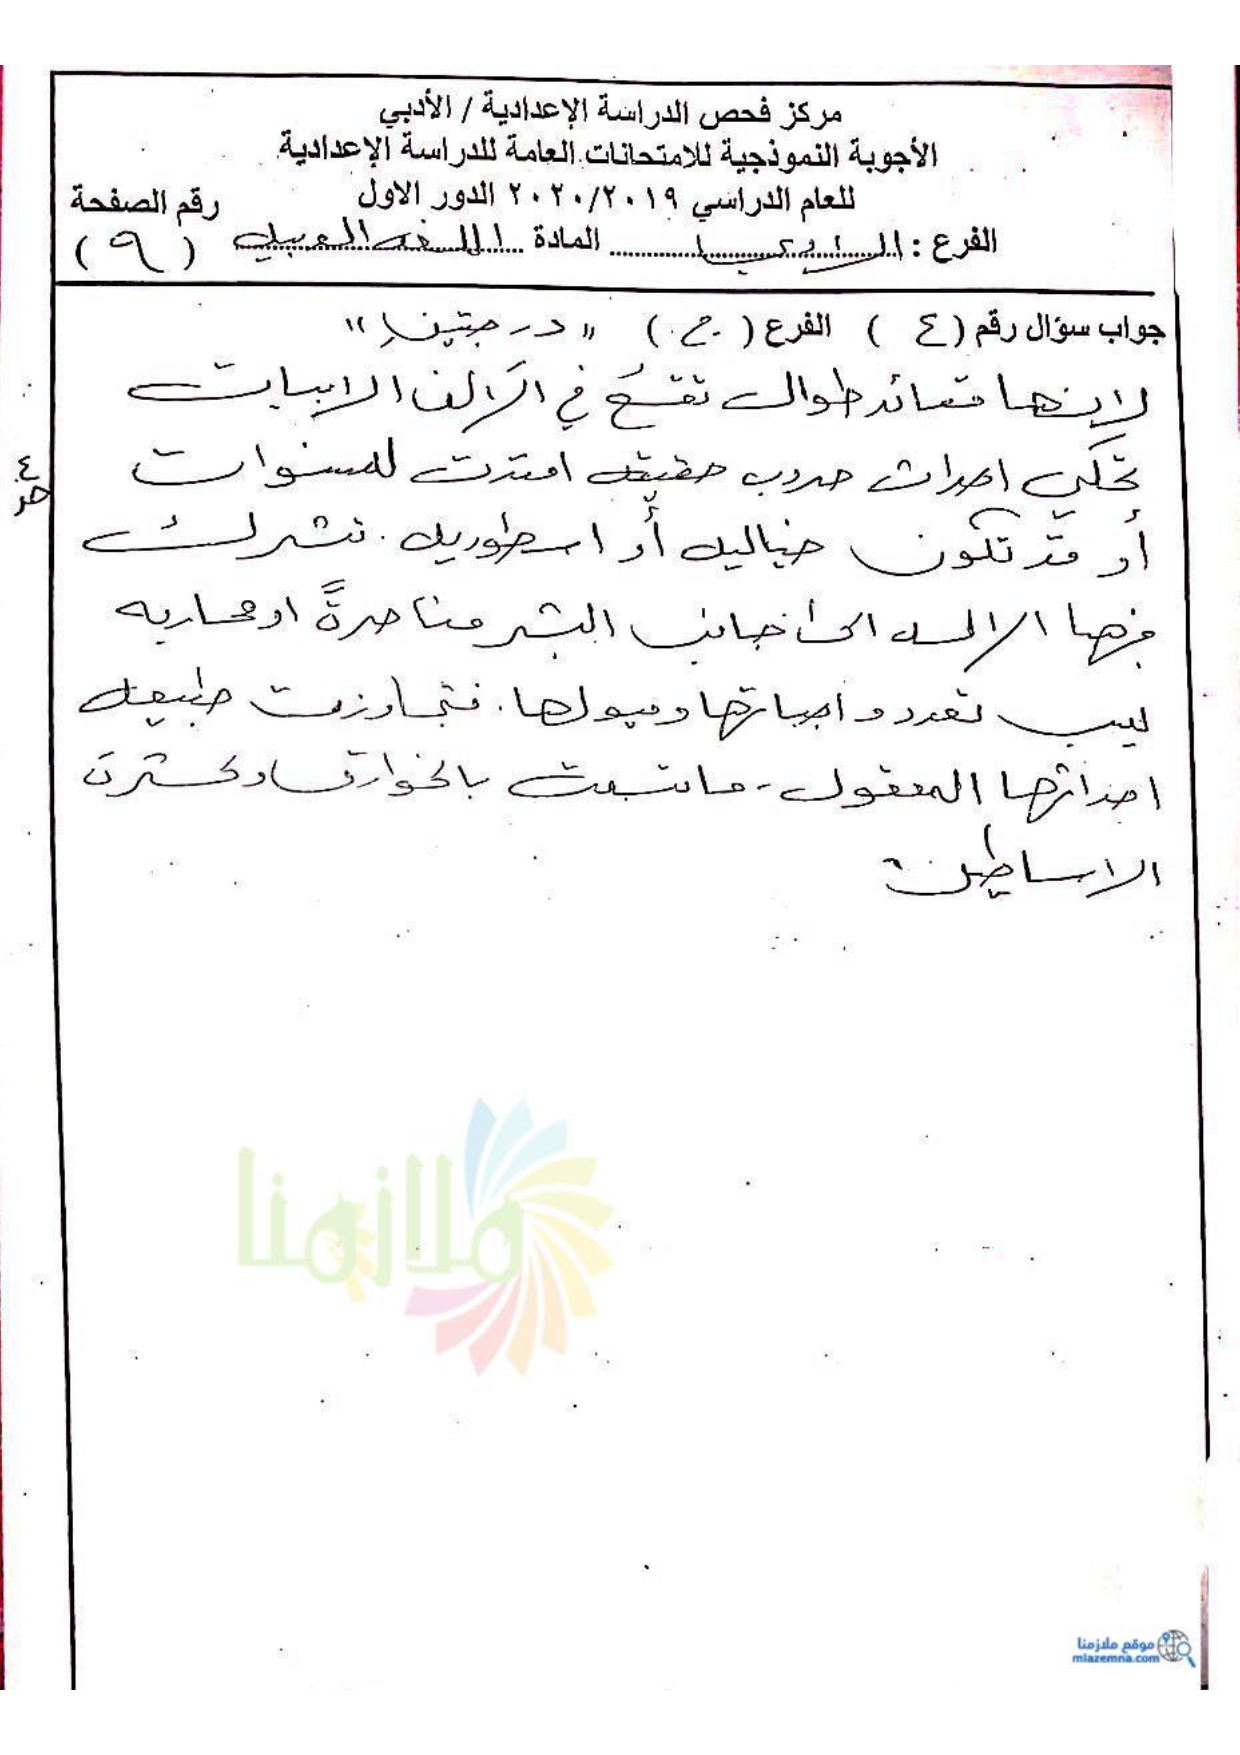 مركز فحص الدراسة الإعدادية / الأدبي
الأجوبة النموذجية للامتحانات العامة للدراسة الإعدادية
للعام الدراسي ٢٠٢٠/٢٠١٩ الدور الاول
رقم الصفحة
الفرع : الادبي المادة اللغة العربية (٩)
جواب سؤال رقم (٤) الفرع (ج) "درجتين"
لانها قصائد طوال تقع في آلاف الابيات
٤
تحكي احداث حروب حقيقه امتدت لسنوات
أو قد تكون خياليه أو اسطوريه. تشترك
فيها الالهه الى جانب البشر مناصرةً او محاربه
تعدد واجباتها وميولها. فتجاوزت طبيعه
احداثها المعقول. بالخوارق وكثرت
الاساطير
ملازمنا
موقع ملازمنا
mlazemna.com